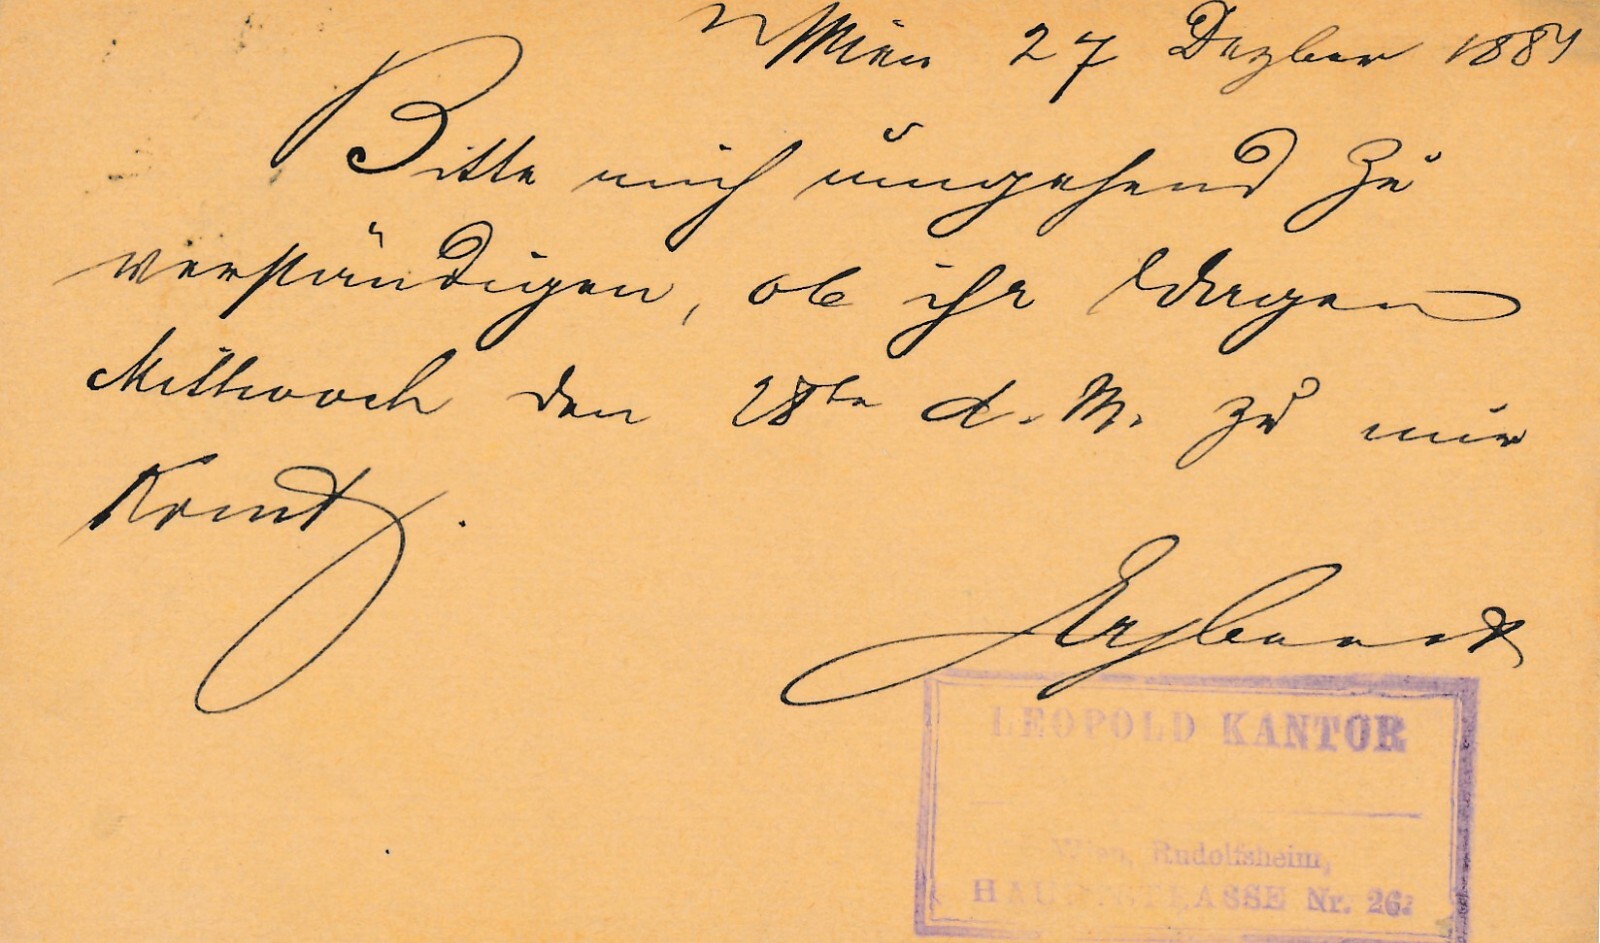 Wien 27 Dezber 1881
Bitte mich umgehend zu
verständigen, ob ihr Wagen
Mittwoch den 28te d. M. zu mir
komt.
Ergbenst
LEOPOLD KANTOR
Wien, Rudolfsheim,
HAUPTSTRASSE Nr. 26.